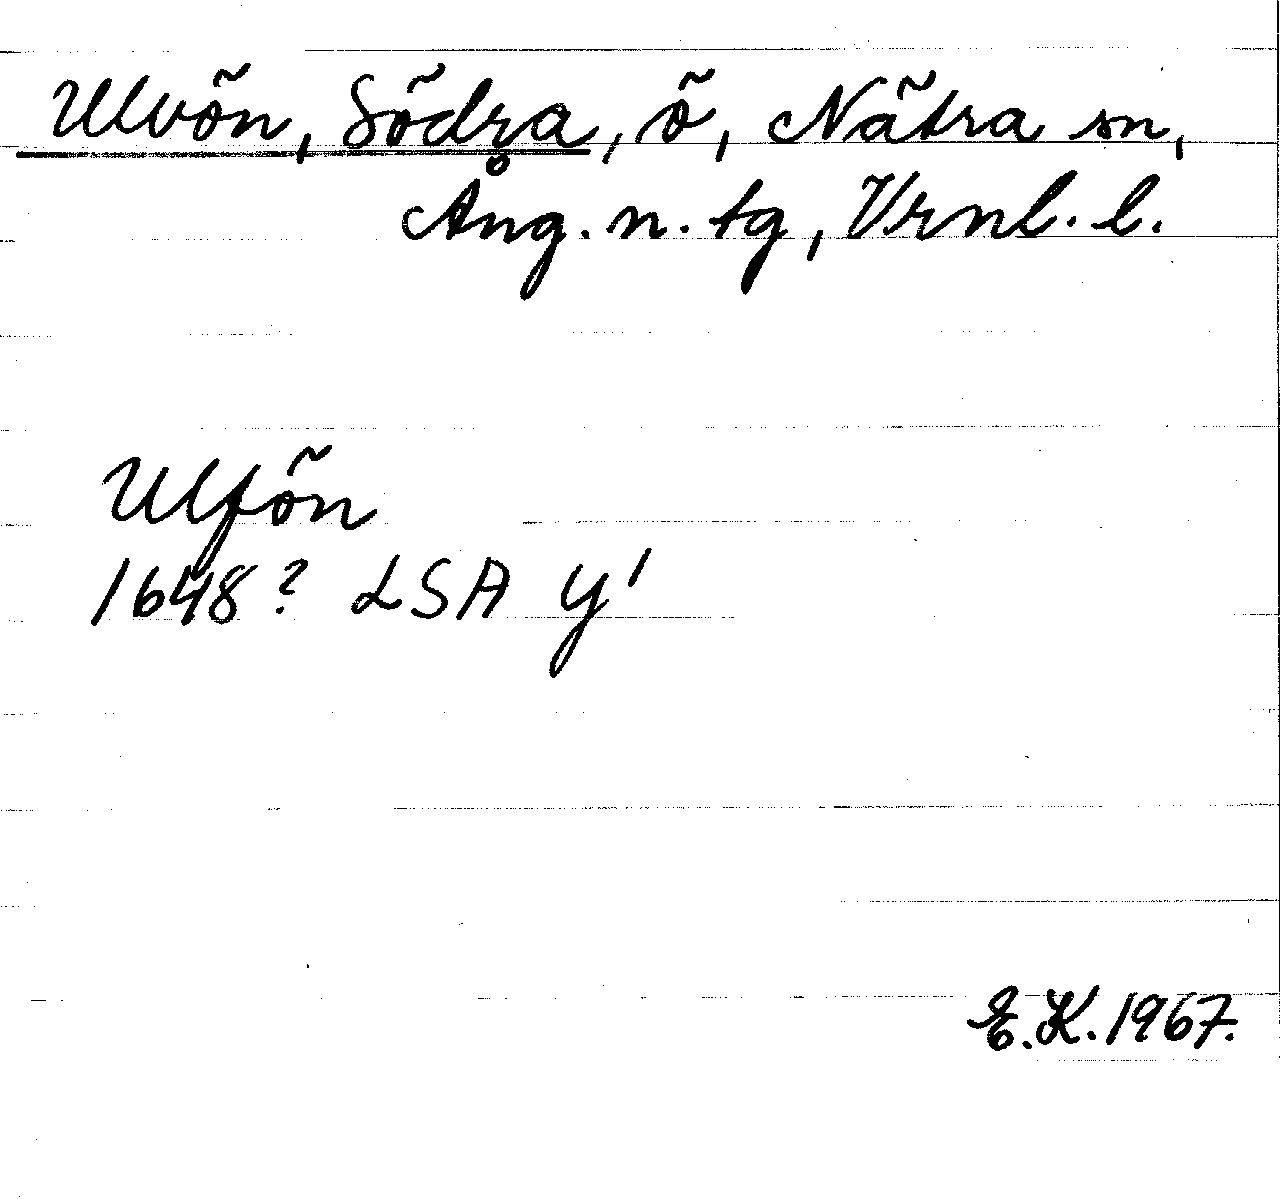 Ulvön, Södra, ö, Nätra sn,
Ång. n. tg, Vrnl. l.
Ulfön
1648? LSA Y'
E.K. 1967.